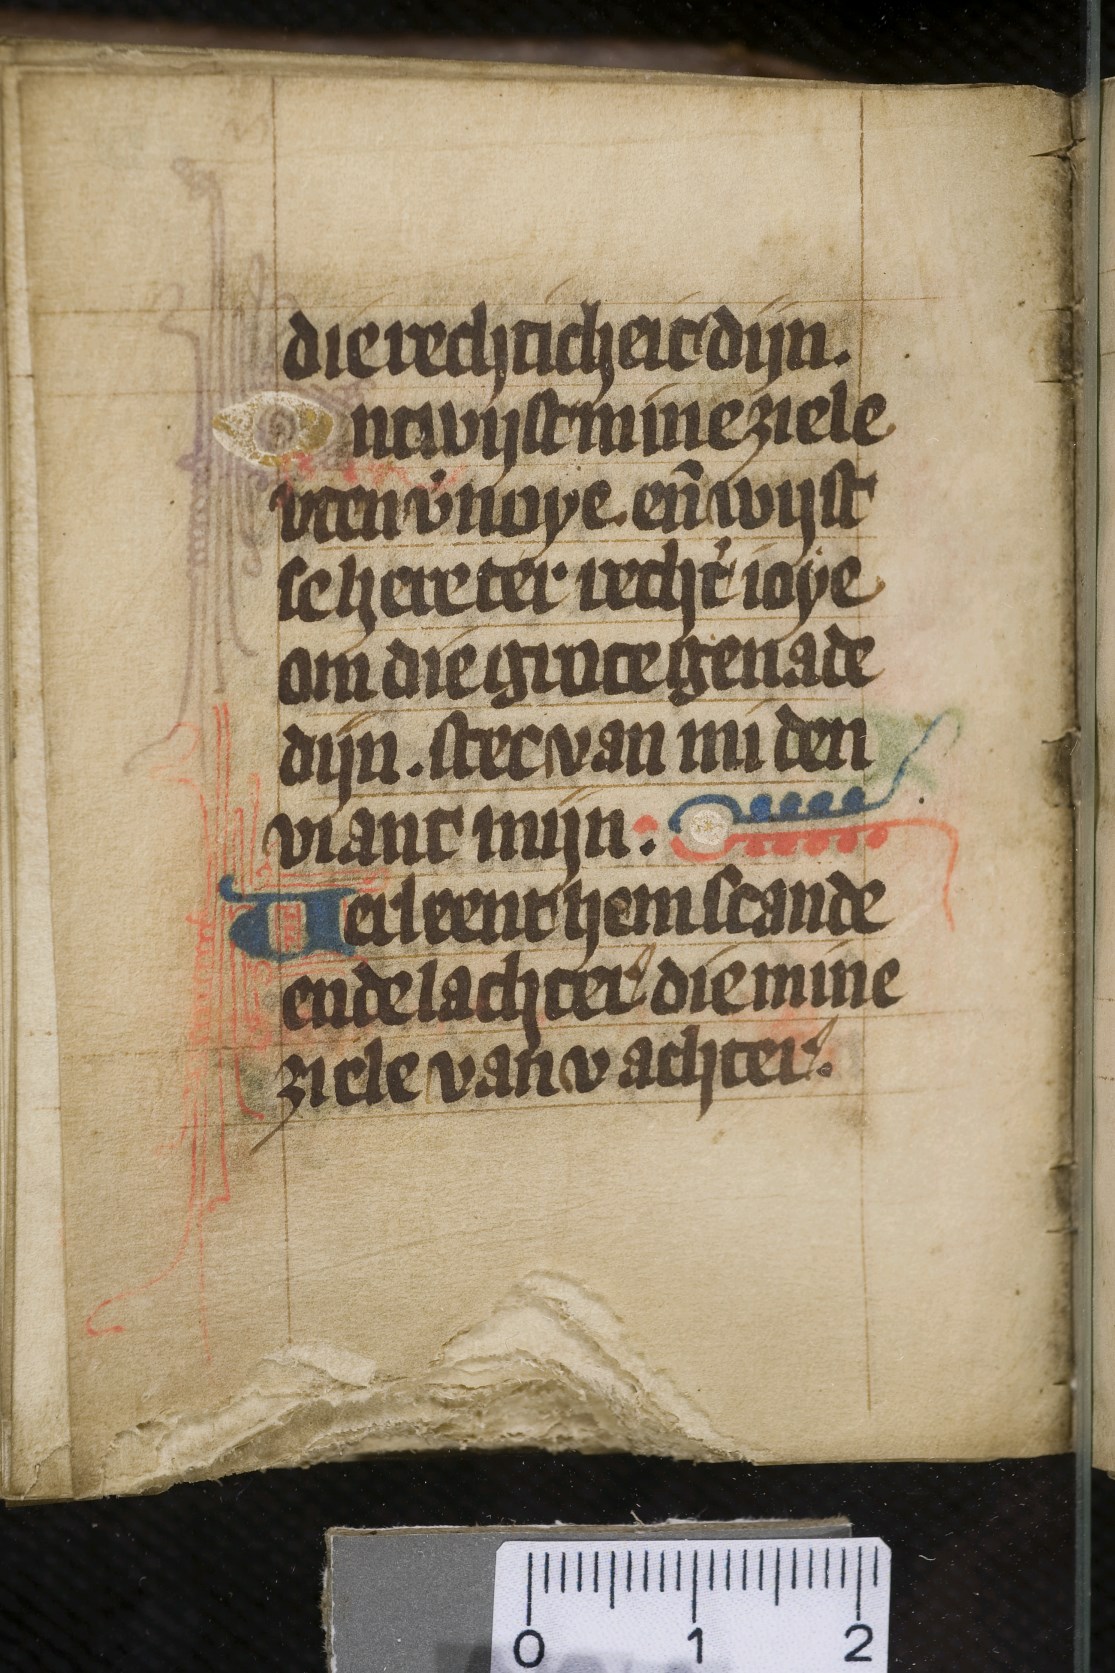 die rechticheit dijn.
Ontwijst mine ziele
vten v'noye. en̄ wijst
se here ter recht' ioye
om die grote genade
dijn. stec van mi den
viant mijn:
Verleent hem scande
ende lachter die mine
ziele van v achter.
0 1 2